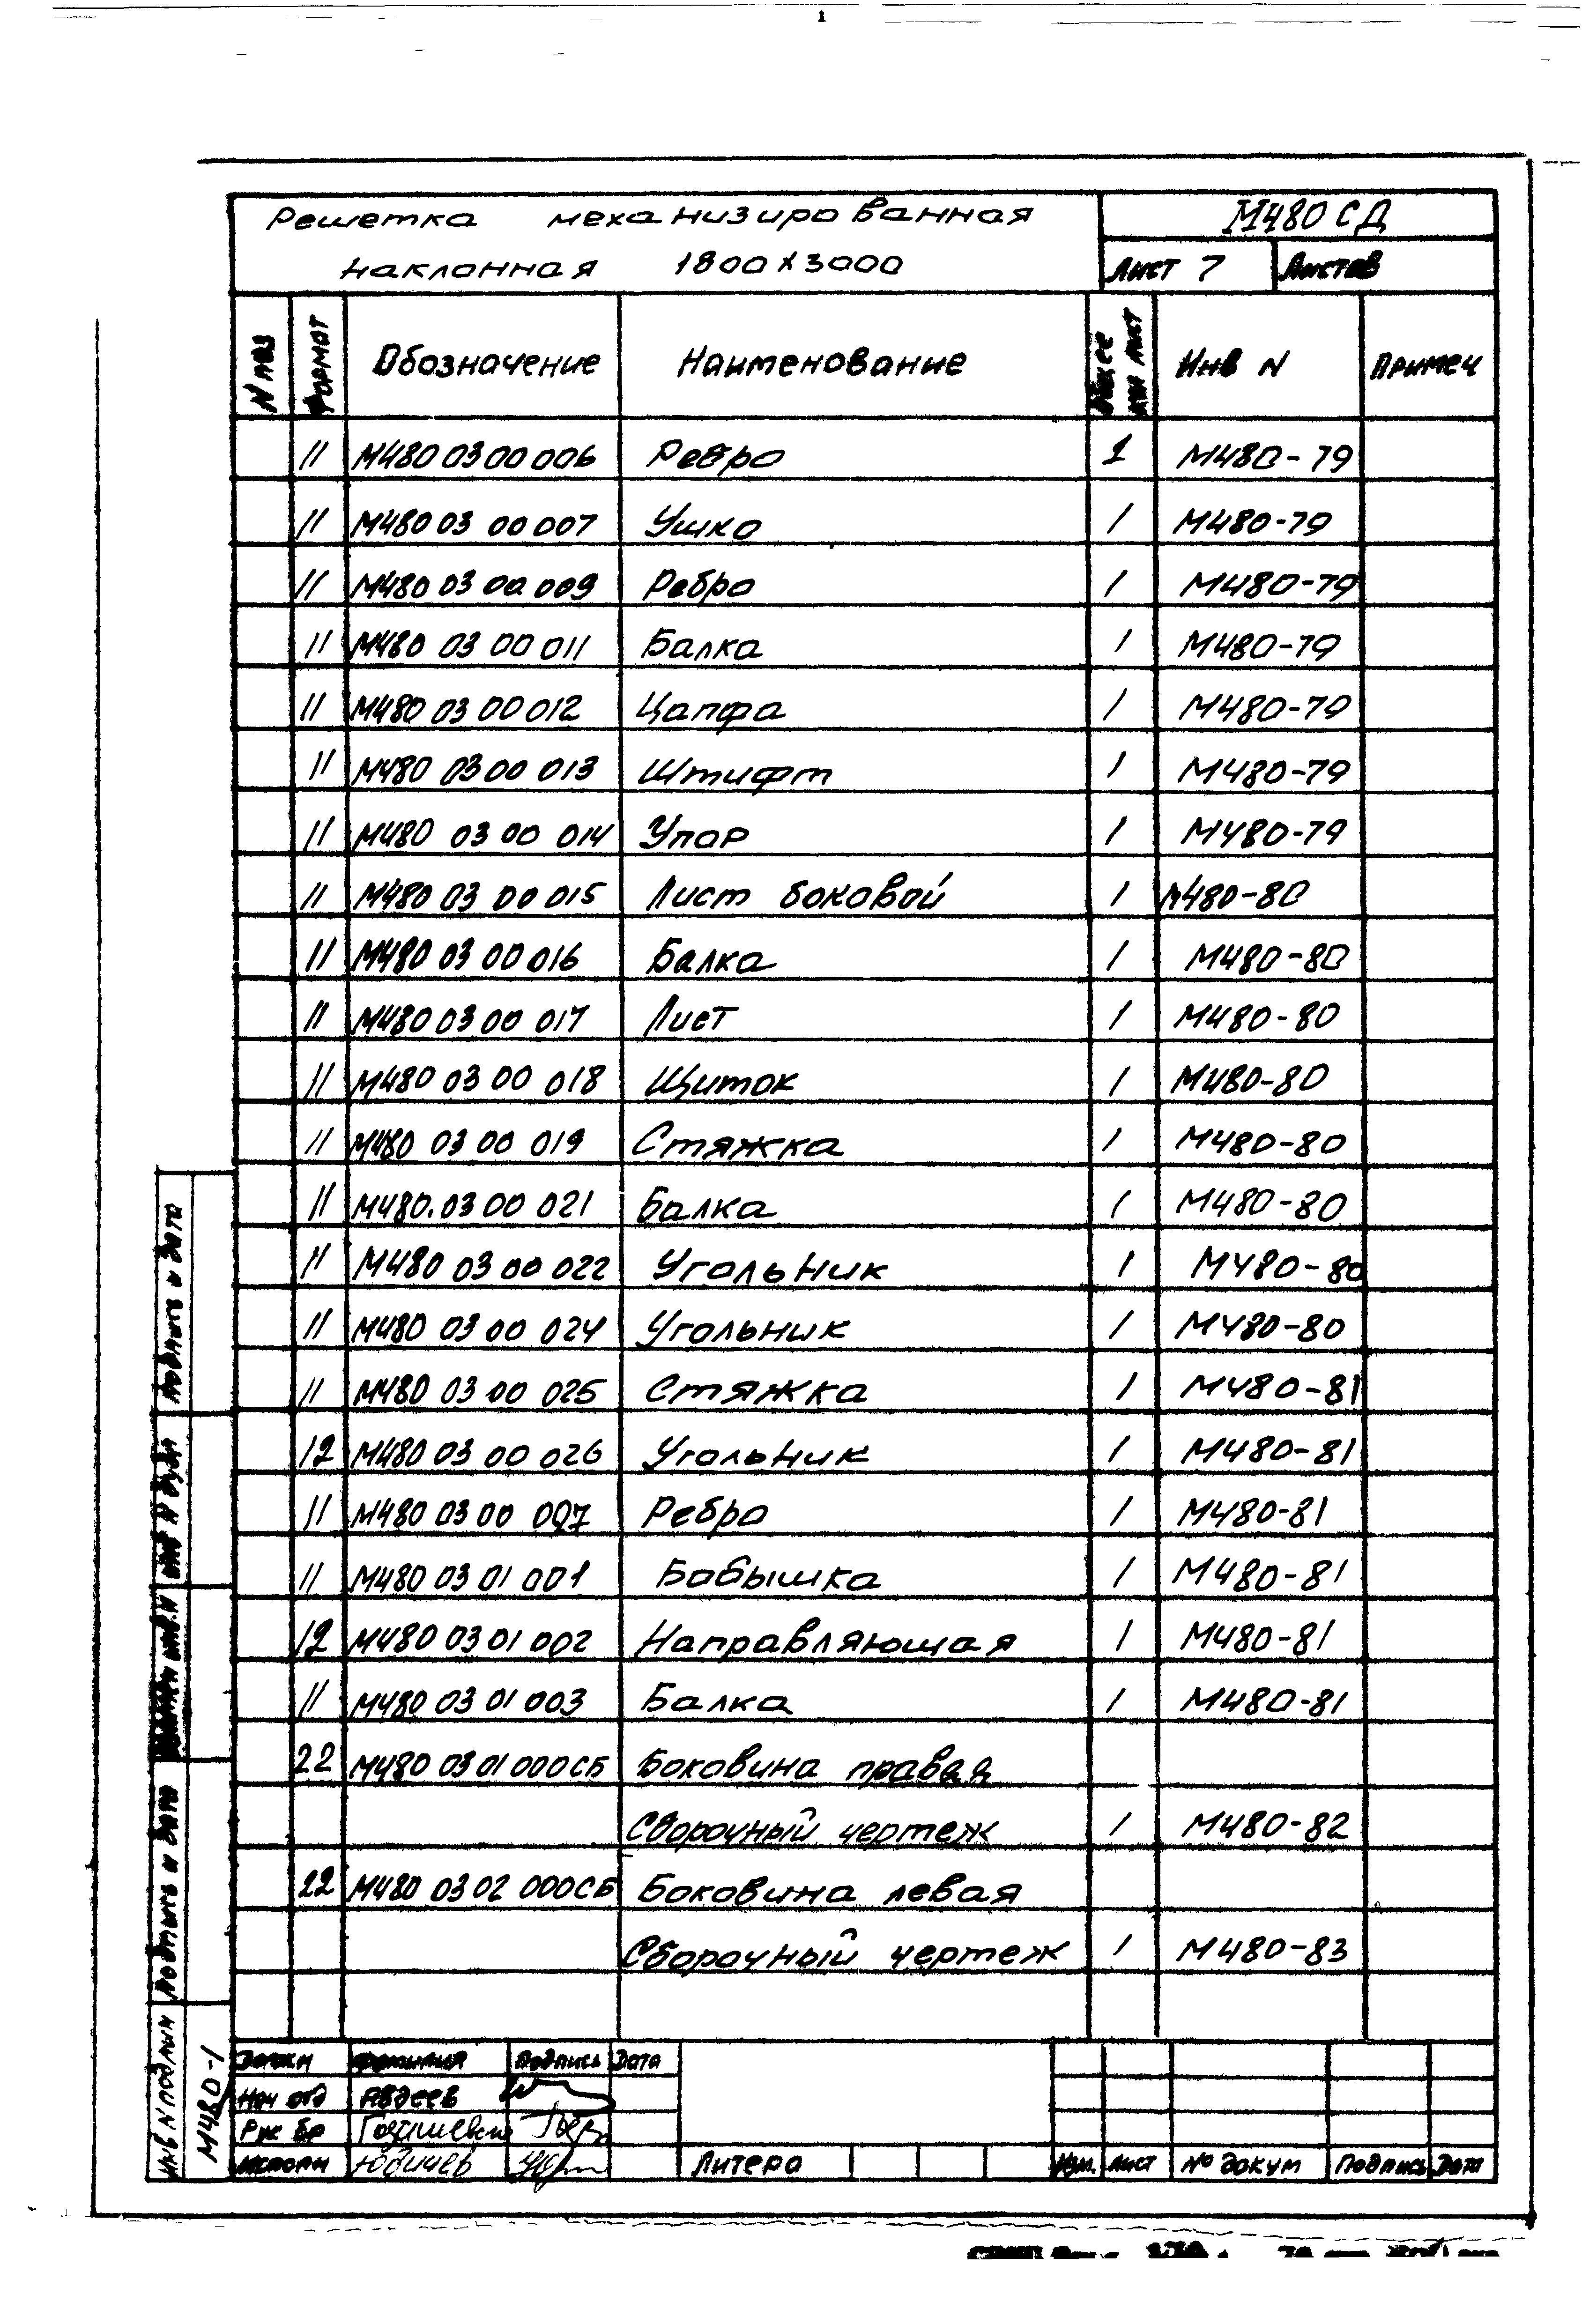 Решетка механизированная
М480 СД
наклонная 1800х3000
Лист 7 Листов
N поз Формат Обозначение Наименование Общее кол лист Инв N Примеч
11 М480 03 00 006 Ребро 1 М480-79
11 М480 03 00 007 Ушко 1 М480-79
11 М480 03 00 009 Ребро 1 М480-79
11 М480 03 00 011 Балка 1 М480-79
11 М480 03 00 012 Цапфа 1 М480-79
11 М480 03 00 013 Штифт 1 М480-79
11 М480 03 00 014 Упор 1 М480-79
11 М480 03 00 015 Лист боковой 1 М480-80
11 М480 03 00 016 Балка 1 М480-80
11 М480 03 00 017 Лист 1 М480-80
11 М480 03 00 018 Щиток 1 М480-80
11 М480 03 00 019 Стяжка 1 М480-80
11 М480.03 00 021 Балка 1 М480-80
11 М480 03 00 022 Угольник 1 М480-80
11 М480 03 00 024 Угольник 1 М480-80
11 М480 03 00 025 Стяжка 1 М480-81
12 М480 03 00 026 Угольник 1 М480-81
11 М480 03 00 Ребро 1 М480-81
11 М480 03 01 001 Бобышка 1 М480-81
12 М480 03 01 002 Направляющая 1 М480-81
11 М480 03 01 003 Балка 1 М480-81
22 М480 03 01 000СБ Боковина правая
Сборочный чертеж 1 М480-82
22 М480 03 02 000СБ Боковина левая
Сборочный чертеж 1 М480-83
Подпись и дата
Инв N дубл
Взамен инв.N
Подпись и дата
Инв N подлин М480-1
Должн Фамилия Подпись Дата
Нач отд Авдеев
Рук бр
Исполн Юдичев
Литера
Изм. Лист № докум Подпись Дата